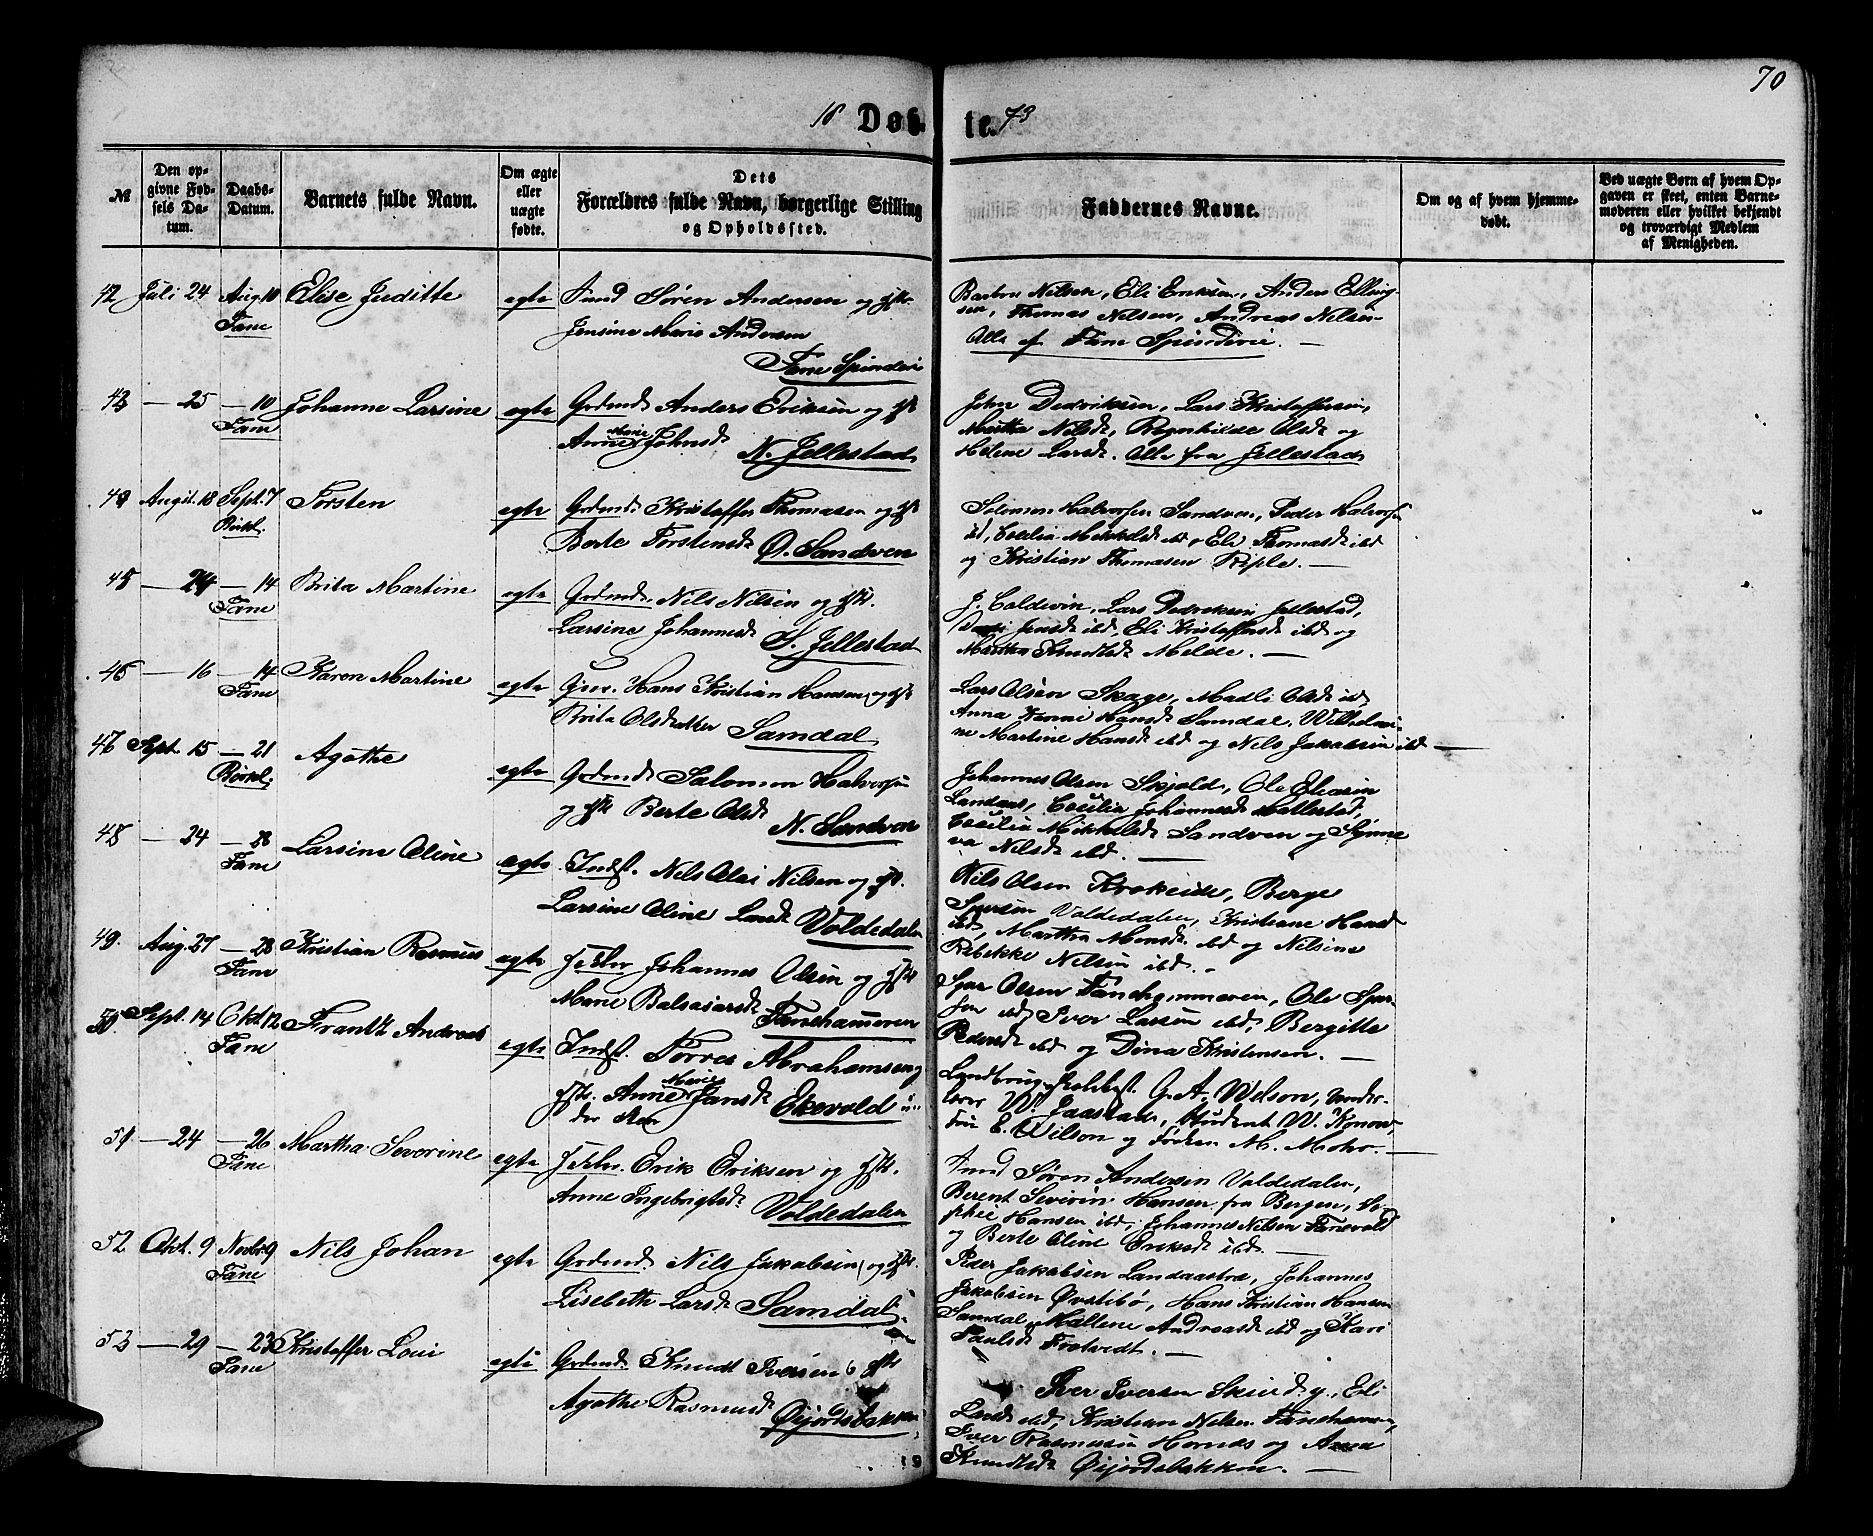 70
18 Døb te. 73
№
Den opgivne Fødsels Datum.
Daabs-Datum.
Barnets fulde Navn.
Om ægte eller uægte fødte.
Dets Forældres fulde Navn, borgerlige Stilling og Opholdssted.
Faddernes Navne.
Om og af hvem hjemmedøbt.
Ved uægte Børn af hvem Opgaven er skeet, enten Barnemoderen eller hvilket bekjendt og troværdigt Medlem af Menigheden.
42 Juli 24 Aug. 10 Elise Juditte egte Søren Andersen og
Fane Jensine Marie Andersen
Fane Spinderi
Nilsen, Eli Eriksen, Anders
Thomas Nilsen, Andreas Nilsen
Alle af Fane Spinderie. —
43 — 25 — 10 Johanne Larsine egte Grdmd. Anders Eriksen og
Fane Anne Marie Johnsdt N. Jellestad
John Dedriksen, Lars Kristoffersen,
Martha Nilsdt, Ragnhilde Olsdt og
Helene Larsdt. Alle fra Jellestad
44 Augst. 18 Sept. 7 Torsten egte Grdmd. Kristoffer Thomasen og
Birkel. Berte Torstensdt Ø. Sandven
Salomon Halvorsen Sandven, Peder Halvorsen
ibd, Cecilia Mikkelsdt ibd, Eli Thomasdt ibd
og Kristian Thomasen Riple. —
45 — 24 — 14 Brita Martine egte Grdmd. Nils Nilsen og
Fane Larsine Johannesdt S. Jellestad
J. Coldevin, Lars Dedriksen Jellestad,
Jensdt ibd, Eli Kristoffersdt ibd og
Martha Knudsdt Melde. —
46 — 16 — 14 Karen Martine egte Hans Kristian Hansen og
Fane Brita Olsdatter Samdal
Lars Olsen Skage, Madli Olsdt ibd,
Anna Hansdt Samdal, Wilhelmi-
ne Martine Hansdt ibd og Nils Jakobsen ibd —
47 Sept. 15 — 21 Agathe egte Grdmd. Salomon Halvorsen
Birkel. og Berte Olsdt N. Sandven
Johannes Olsen Skjold, Ole Eliasen
Landaas, Cecilia Johannesdt
Cecilia Mikkelsdt Sandven og Synne-
va Nilsdt ibd. —
48 — 24 — 28 Larsine Oline egte Indst. Nils Olai Nilsen og
Fane Larsine Oline Larsdt Voldedalen
Nils Olsen Krokeide, Berge
Voldedalen, Kristiane Hansdt
ibd, Martha Monsdt ibd og Nilsine
Rebekke Nilsen ibd. —
49. Aug. 27 — 28 Kristian Rasmus egte Johannes Olsen og
Fane Marie Balsasarsdt Fanehammeren
Olsen Fanehammeren, Ole
ibd, Iver Larsen ibd, Bergitte
Pedersdt ibd og Dina Kristensen. —
50 Sept. 14 Okt. 12 Frantz Andreas egte Indst. Torres Abrahamsen og
Fane Anne Marie Jansdt Ekevold
Landbrugsskolebest. G. A. Wilson, Under-
lærer W. Jaastad, Student W. Konow,
E. Wilson og Frøken M. Mohr. —
51 — 24 — 26 Martha Severine egte Erik Eriksen og
Fane Anne Ingebrigtsdt Voldedalen
Søren Andersen Voldedalen,
Berent Severin Hansen fra Bergen, So-
phie Hansen ibd, Johannes Nilsen Fanevold
og Berte Oline Eriksdt ibd. —
52 Okt. 9 Novbr. 9 Nils Johan egte Grdmd. Nils Jakobsen og
Fane Lisebeth Larsdt Samdal
Peder Jakobsen Landaastræ, Johannes
Jakobsen Øvstebø, Hans Kristian Hansen
Samdal, Mallene Andreasdt ibd og Kari
Paulsdt Frotvedt. —
53 — 29 — 23 Kristoffer Loui egte Grdmd. Knudt Iversen
Fane Agathe Rasmusdt Øijordsbakken
Iver Iversen Eli
Larsdt ibd, Kristian Nilsen Fanehammer,
Iver Rasmussen Hornæs og Anna
Knudsdt Øijordsbakken. —